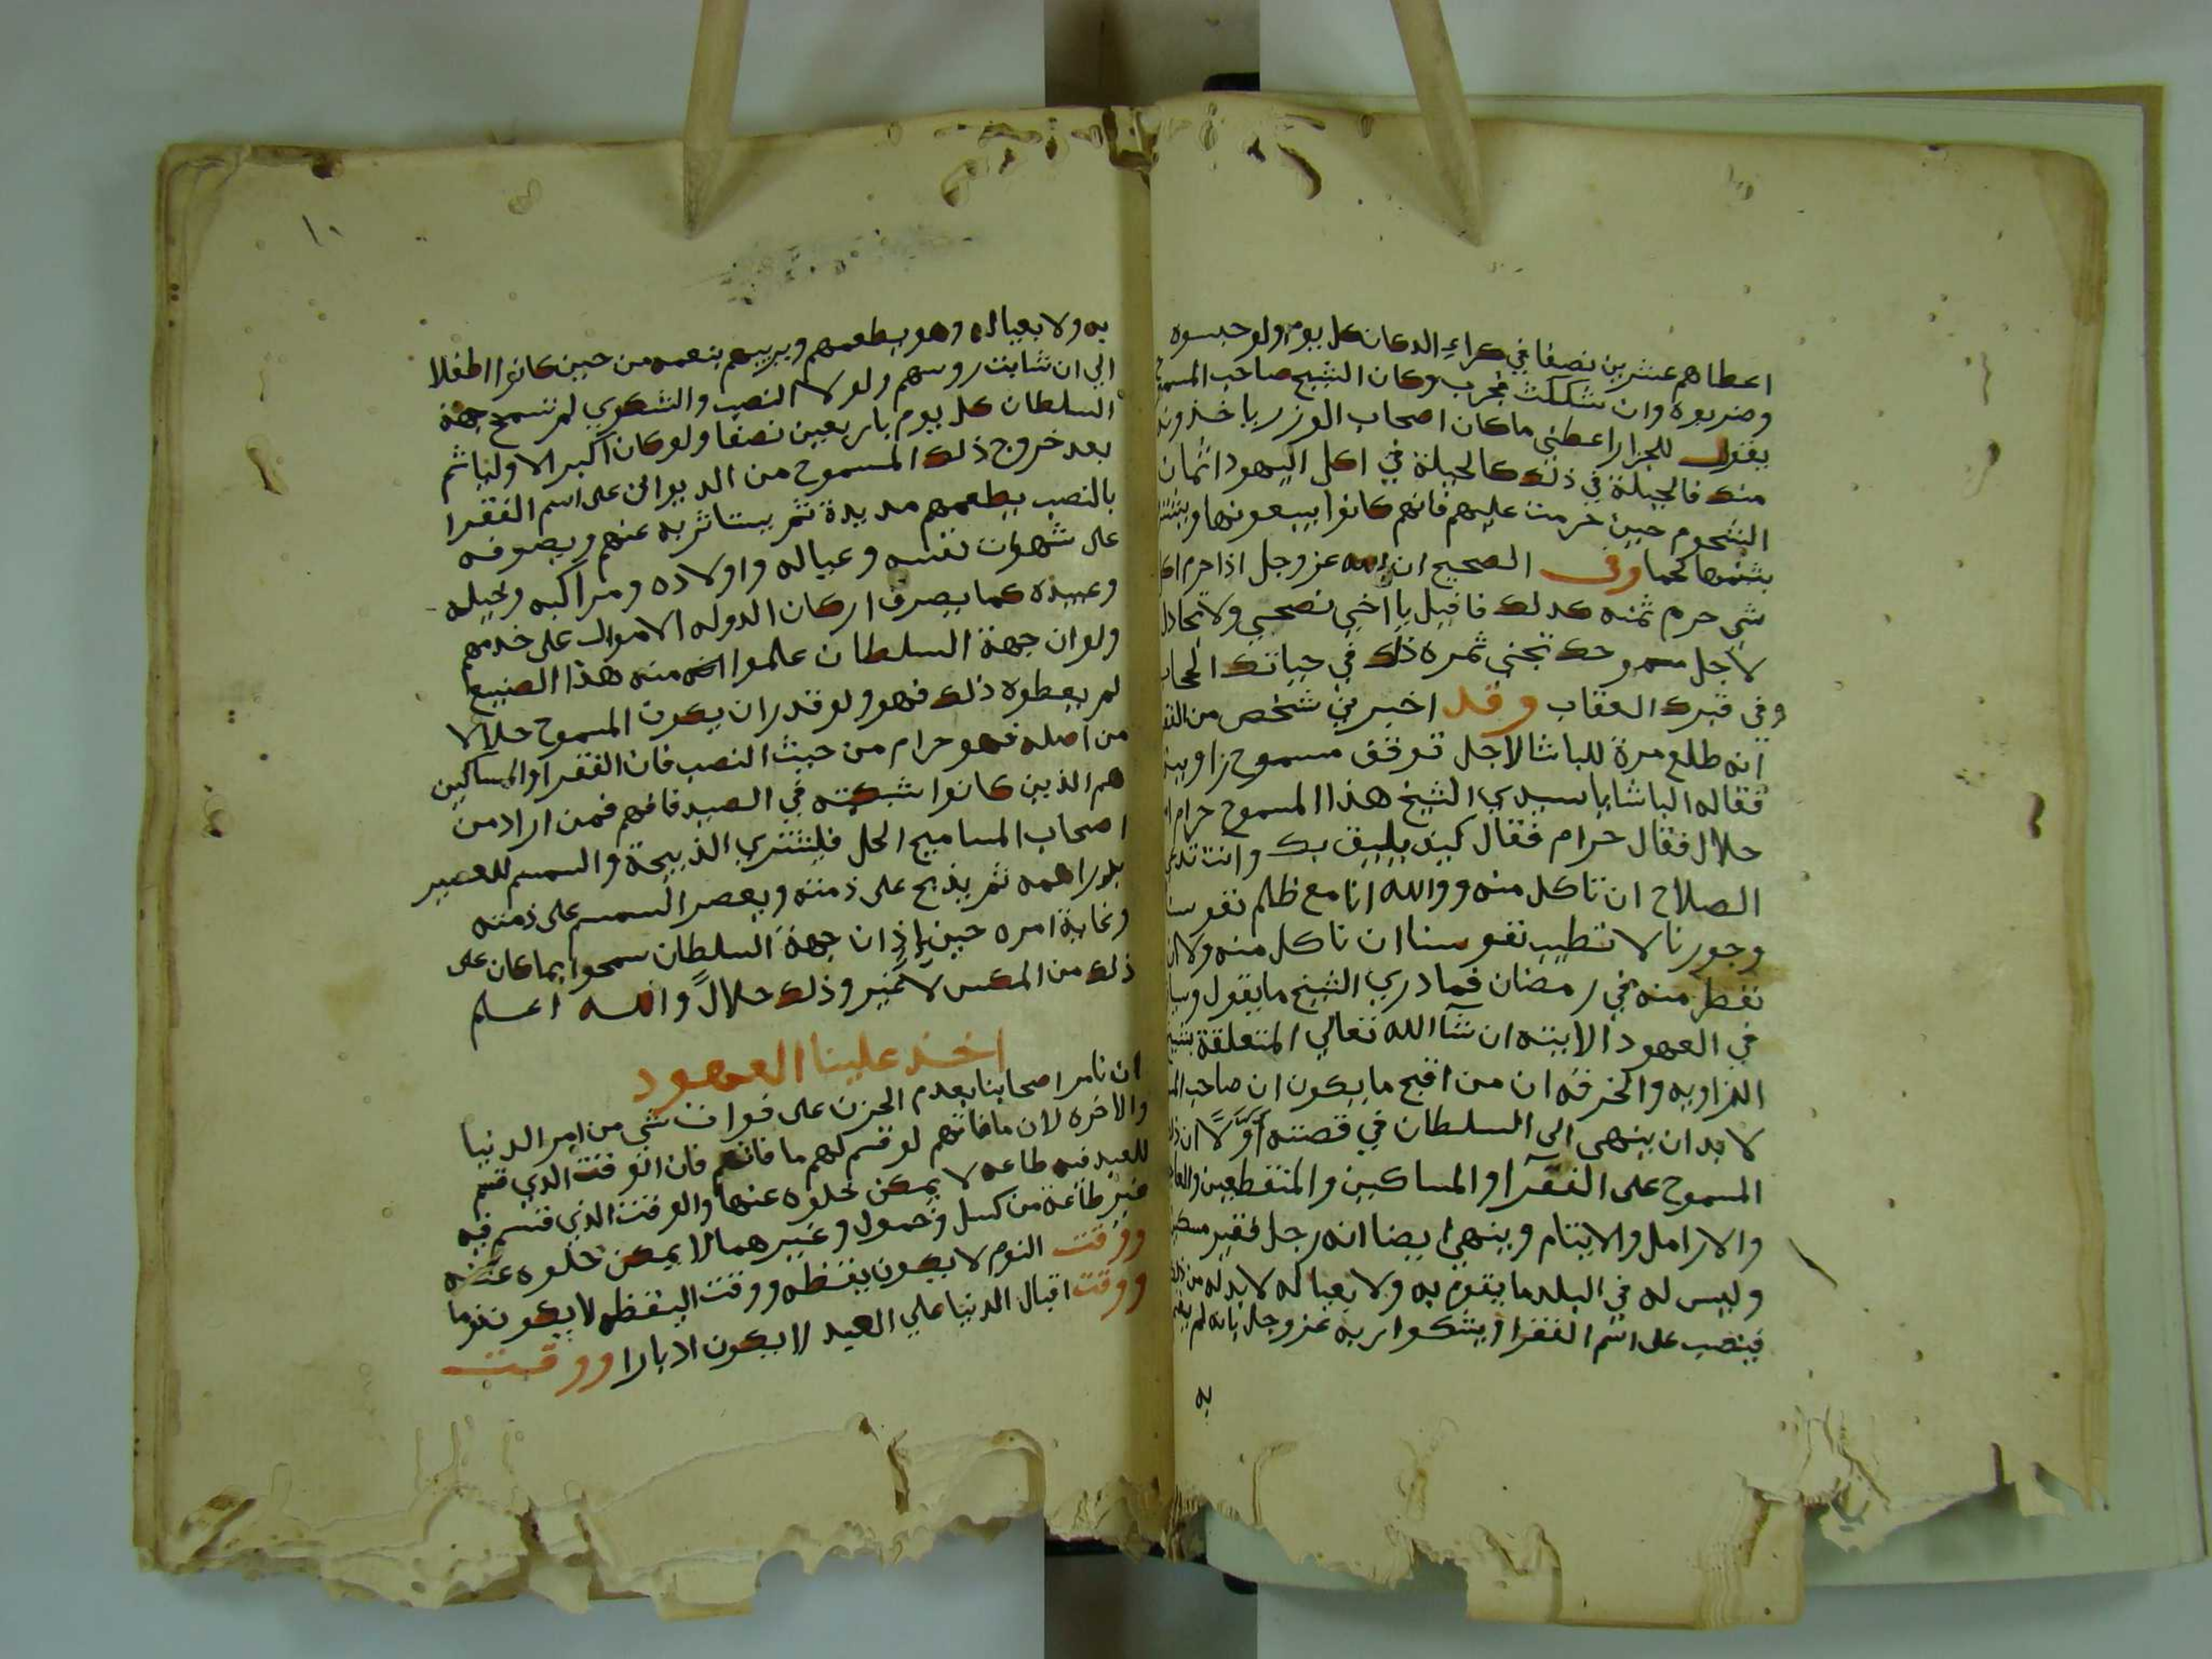 اعطاهم عشرين نصفا في كراء الدكان كل يوم ولو حبسوه
وضربوه وان شككت فجرب وكان الشيخ صاحب المسموح
يقول للجزار اعطني ما كان اصحاب الوزر ياخذونه
منك فالحيلة في ذلك كالحيلة في اكل اليهود اثمان
الشحوم حين حرمت عليهم فانهم كانوا يبيعونها و
بثمنها لحما وفي الصحيح ان الله عز وجل اذا حرم اكل
شي حرم ثمنه كذلك فاقبل يا اخي نصحي ولا تجادل
لاجل مسموحك تجني ثمره ذلك في حياتك الحجاب
وفي قبرك العقاب وقد اخبرني شخص من
انه طلع مرة للباشا لاجل توقف مسموح زاويته
فقاله الباشا يا سيدي الشيخ هذا المسموح حرام ام
حلال فقال حرام فقال كيف يليق بك وانت تدعي
الصلاح ان تاكل منه ووالله انا مع ظلم نفوسنا
وجورنا لا تطيب نفوسنا ان ناكل منه ولا ان
نفطر منه في رمضان فما دري الشيخ ما يقول
في العهود الاتيته ان شآ الله تعالي المتعلقة بشيخ
الزاويه والخرقه ان من اقبح ما يكون ان صاحب
لا بد ان ينهى الى السلطان في قصته اوّلاً ان
المسموح على الفقرآ والمساكين والمنقطعين
والارامل والايتام وينهي ايضا انه رجل فقير
وليس له في البلد ما يقوم به ولا بعياله لا بد له من ذلك
فينصب على اسم الفقرا ويشكوا ربه عز وجل بانه لم
به
١٠
به ولا بعياله وهو يطعمهم ويربيهم بنعمه من حين كانوا اطفالا
الي ان شابت روسهم ولولا النصب والشكوي لم تسمح جهة
السلطان كل يوم باربعين نصفا ولو كان اكبر الاوليا ثم
بعد خروج ذلك المسموح من الديوان على اسم الفقرا
بالنصب يطعمهم مديدة ثم يستاثر به عنهم ويصرفه
على شهوات نفسه وعياله واولاده ومراكبه وخيله
وعبيده كما يصرف اركان الدوله الاموال على خدمهم
ولو ان جهة السلطان علموا منه هذا الصنيع
لم يعطوه ذلك فهو ولو قدر ان يكون المسموح حلالا
من اصله فهو حرام من حيث النصب فان الفقرا والمساكين
هم الذين كانوا شبكته في الصيد فافهم فمن اراد من
اصحاب المساميح الحل فليشتري الذبيحة والسمسم للعصير
بدراهمه ثم يذبح على ذمته ويعصر السمسم على ذمته
وغاية امره حينئذ ان جهة السلطان سمحوا بما كان على
ذلك من المكس لا غير وذلك حلالً والله اعلم
اخذ علينا العهود
ان نامر اصحابنا بعدم الحزن على فوات شي من امر الدنيا
والاخره لان ما فاتهم لو قسم لهم ما فاتهم فان الوقت الذي قسم
للعبد فيه طاعه لا يمكن خلوه عنها والوقت الذي قسم فيه
غير طاعة من كسل وخمول وغيرهما لا يمكن خلوه عنه
ووقت النوم لا يكون يقظه ووقت اليقظه لا يكون نوما
ووقت اقبال الدنيا علي العبد لا يكون ادبارا ووقت